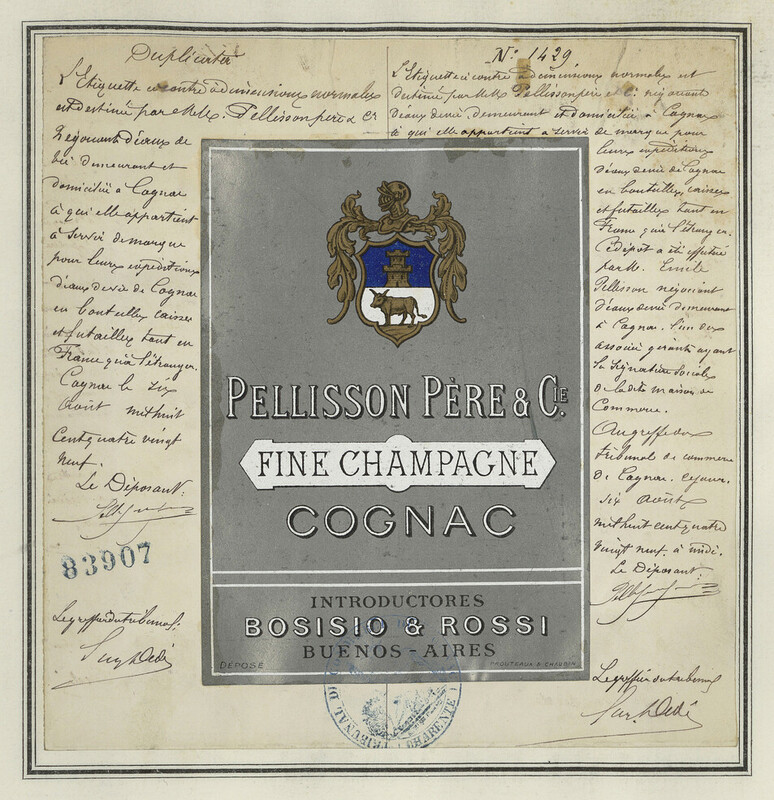 Duplicata
L'Etiquette ci contre à dimensions normales
est destiné par MM. Pellisson père & Cie
Négociants d'eaux de
vie demeurant et
domicilié à Cognac
à qui elle appartient
à servir de marque
pour leurs expéditions
d'eaux de vie de Cognac
en bouteilles caisses
et futailles tant en
France qu'à l'étranger.
Cognac le six
Août mil huit
cent quatre vingt
neuf.
Le Déposant:
83907
Le greffier du tribunal:
N° 1429
L'Etiquette ci contre à dimensions normales est
destiné par MM. Pellisson père et Cie négociant
d'eaux de vie demeurant et domicilié à Cognac
à qui elle appartient à servir de marque pour
leurs expéditions
d'eaux de vie de Cognac
en bouteilles, caisses
et futailles tant en
France qu'à l'étranger.
Ce dépôt a été effectué
par M. Emile
Pellisson négociant
d'eaux de vie demeurant
à Cognac. l'un des
associé gérants ayant
la signature sociale
de la dite maison de
Commerce.
Au greffe du
tribunal de commerce
de Cognac. ce jour.
six Août
mil huit cent quatre
vingt neuf. à midi.
Le Déposant:
Le greffier du tribunal
PELLISSON PÈRE & CIE.
FINE CHAMPAGNE
COGNAC
INTRODUCTORES
BOSISIO & ROSSI
BUENOS-AIRES
DÉPOSÉ
TRIBUNAL DE
CHARENTE